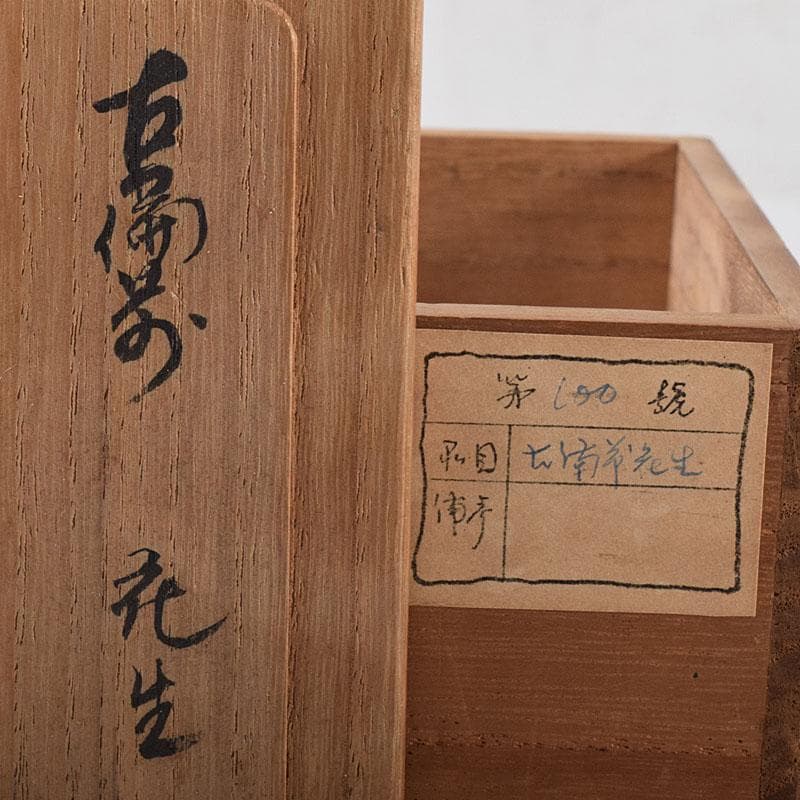 古備前
花生
第 100 號
品目 古備前花生
備考